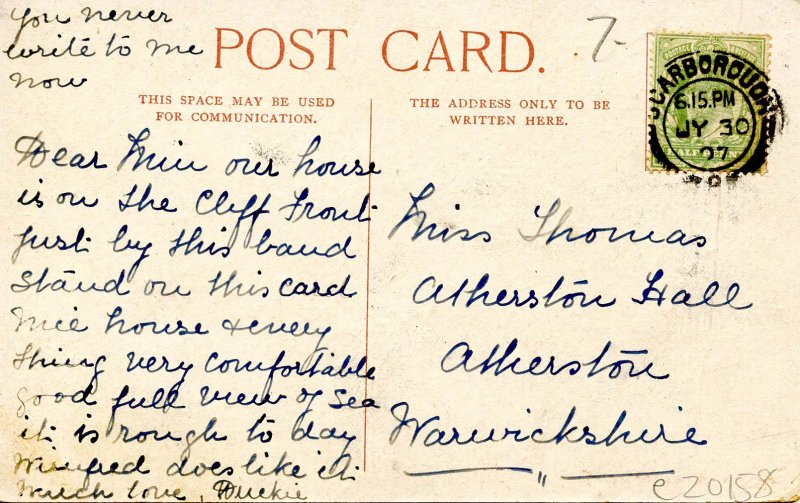 you never
write to me
now
POST CARD.
7-
THIS SPACE MAY BE USED
FOR COMMUNICATION.
THE ADDRESS ONLY TO BE
WRITTEN HERE.
POSTAGE
SCARBOROUGH
6.15.PM
JY 30
07
Dear Min our house
is on the Cliff Front
just by this band
stand on this card
nice house & every
thing very comfortable
good full view of sea
it is rough to day
Winifred does like it
much love, Duckie
Miss Thomas
Atherston Hall
Atherston
Warwickshire
c20158